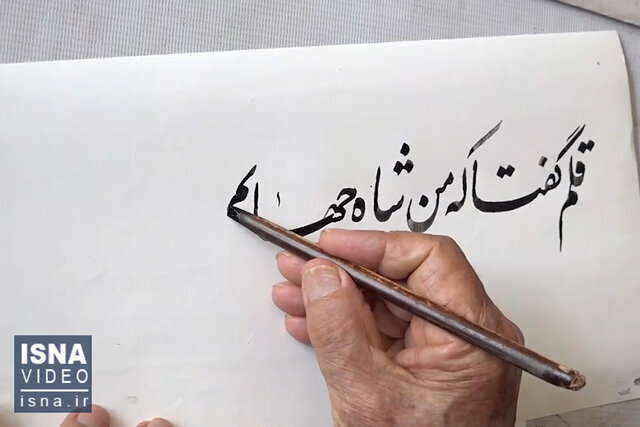 قلم گفتا که من شاه جهانم
ISNA
VIDEO
isna.ir